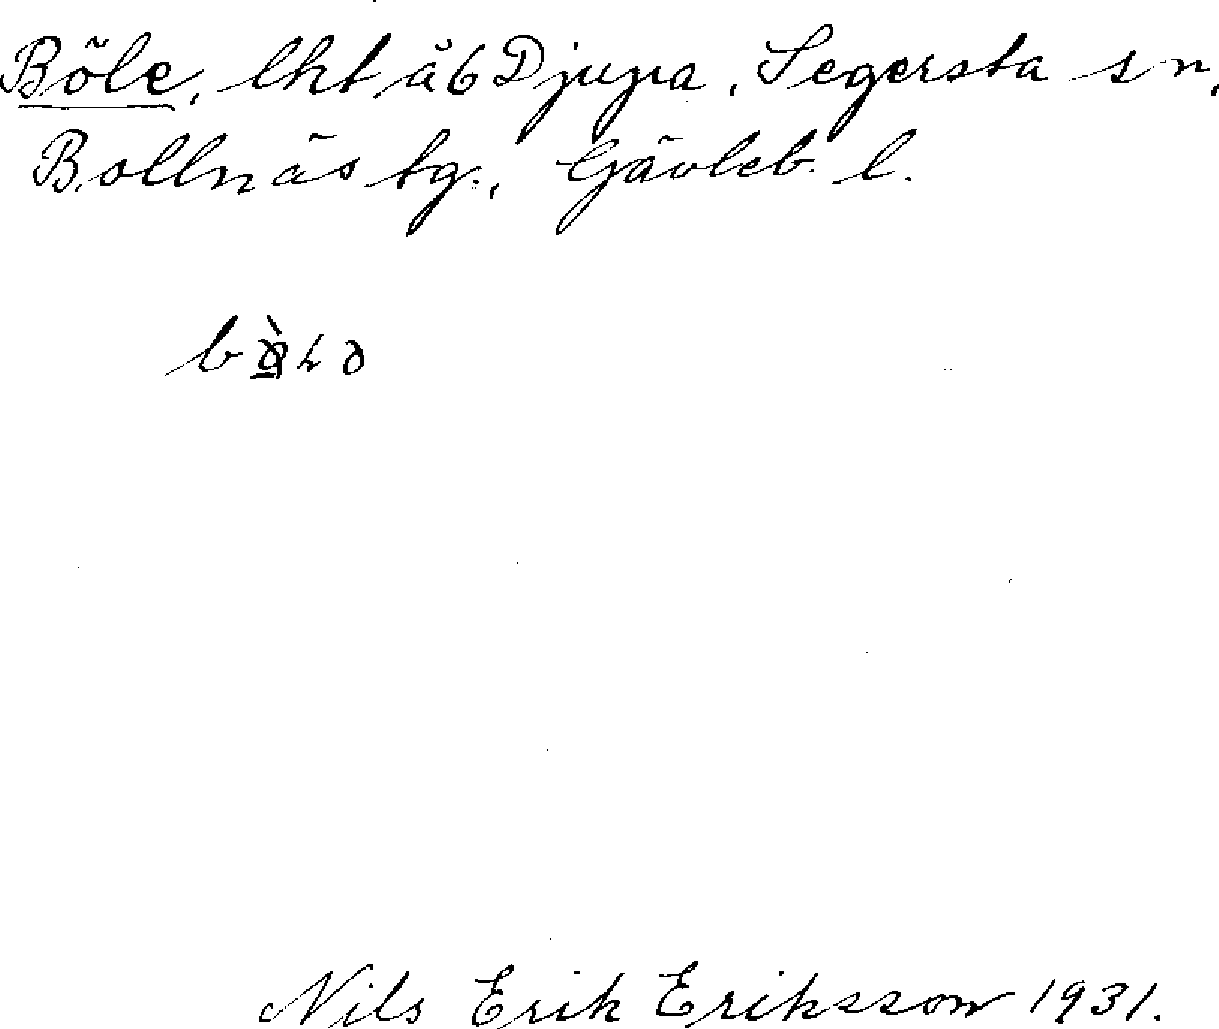 Böle, lht å 6 Djupa, Segersta sn,
Bollnäs tg., Gävleb. l.
Nils Erik Eriksson 1931.